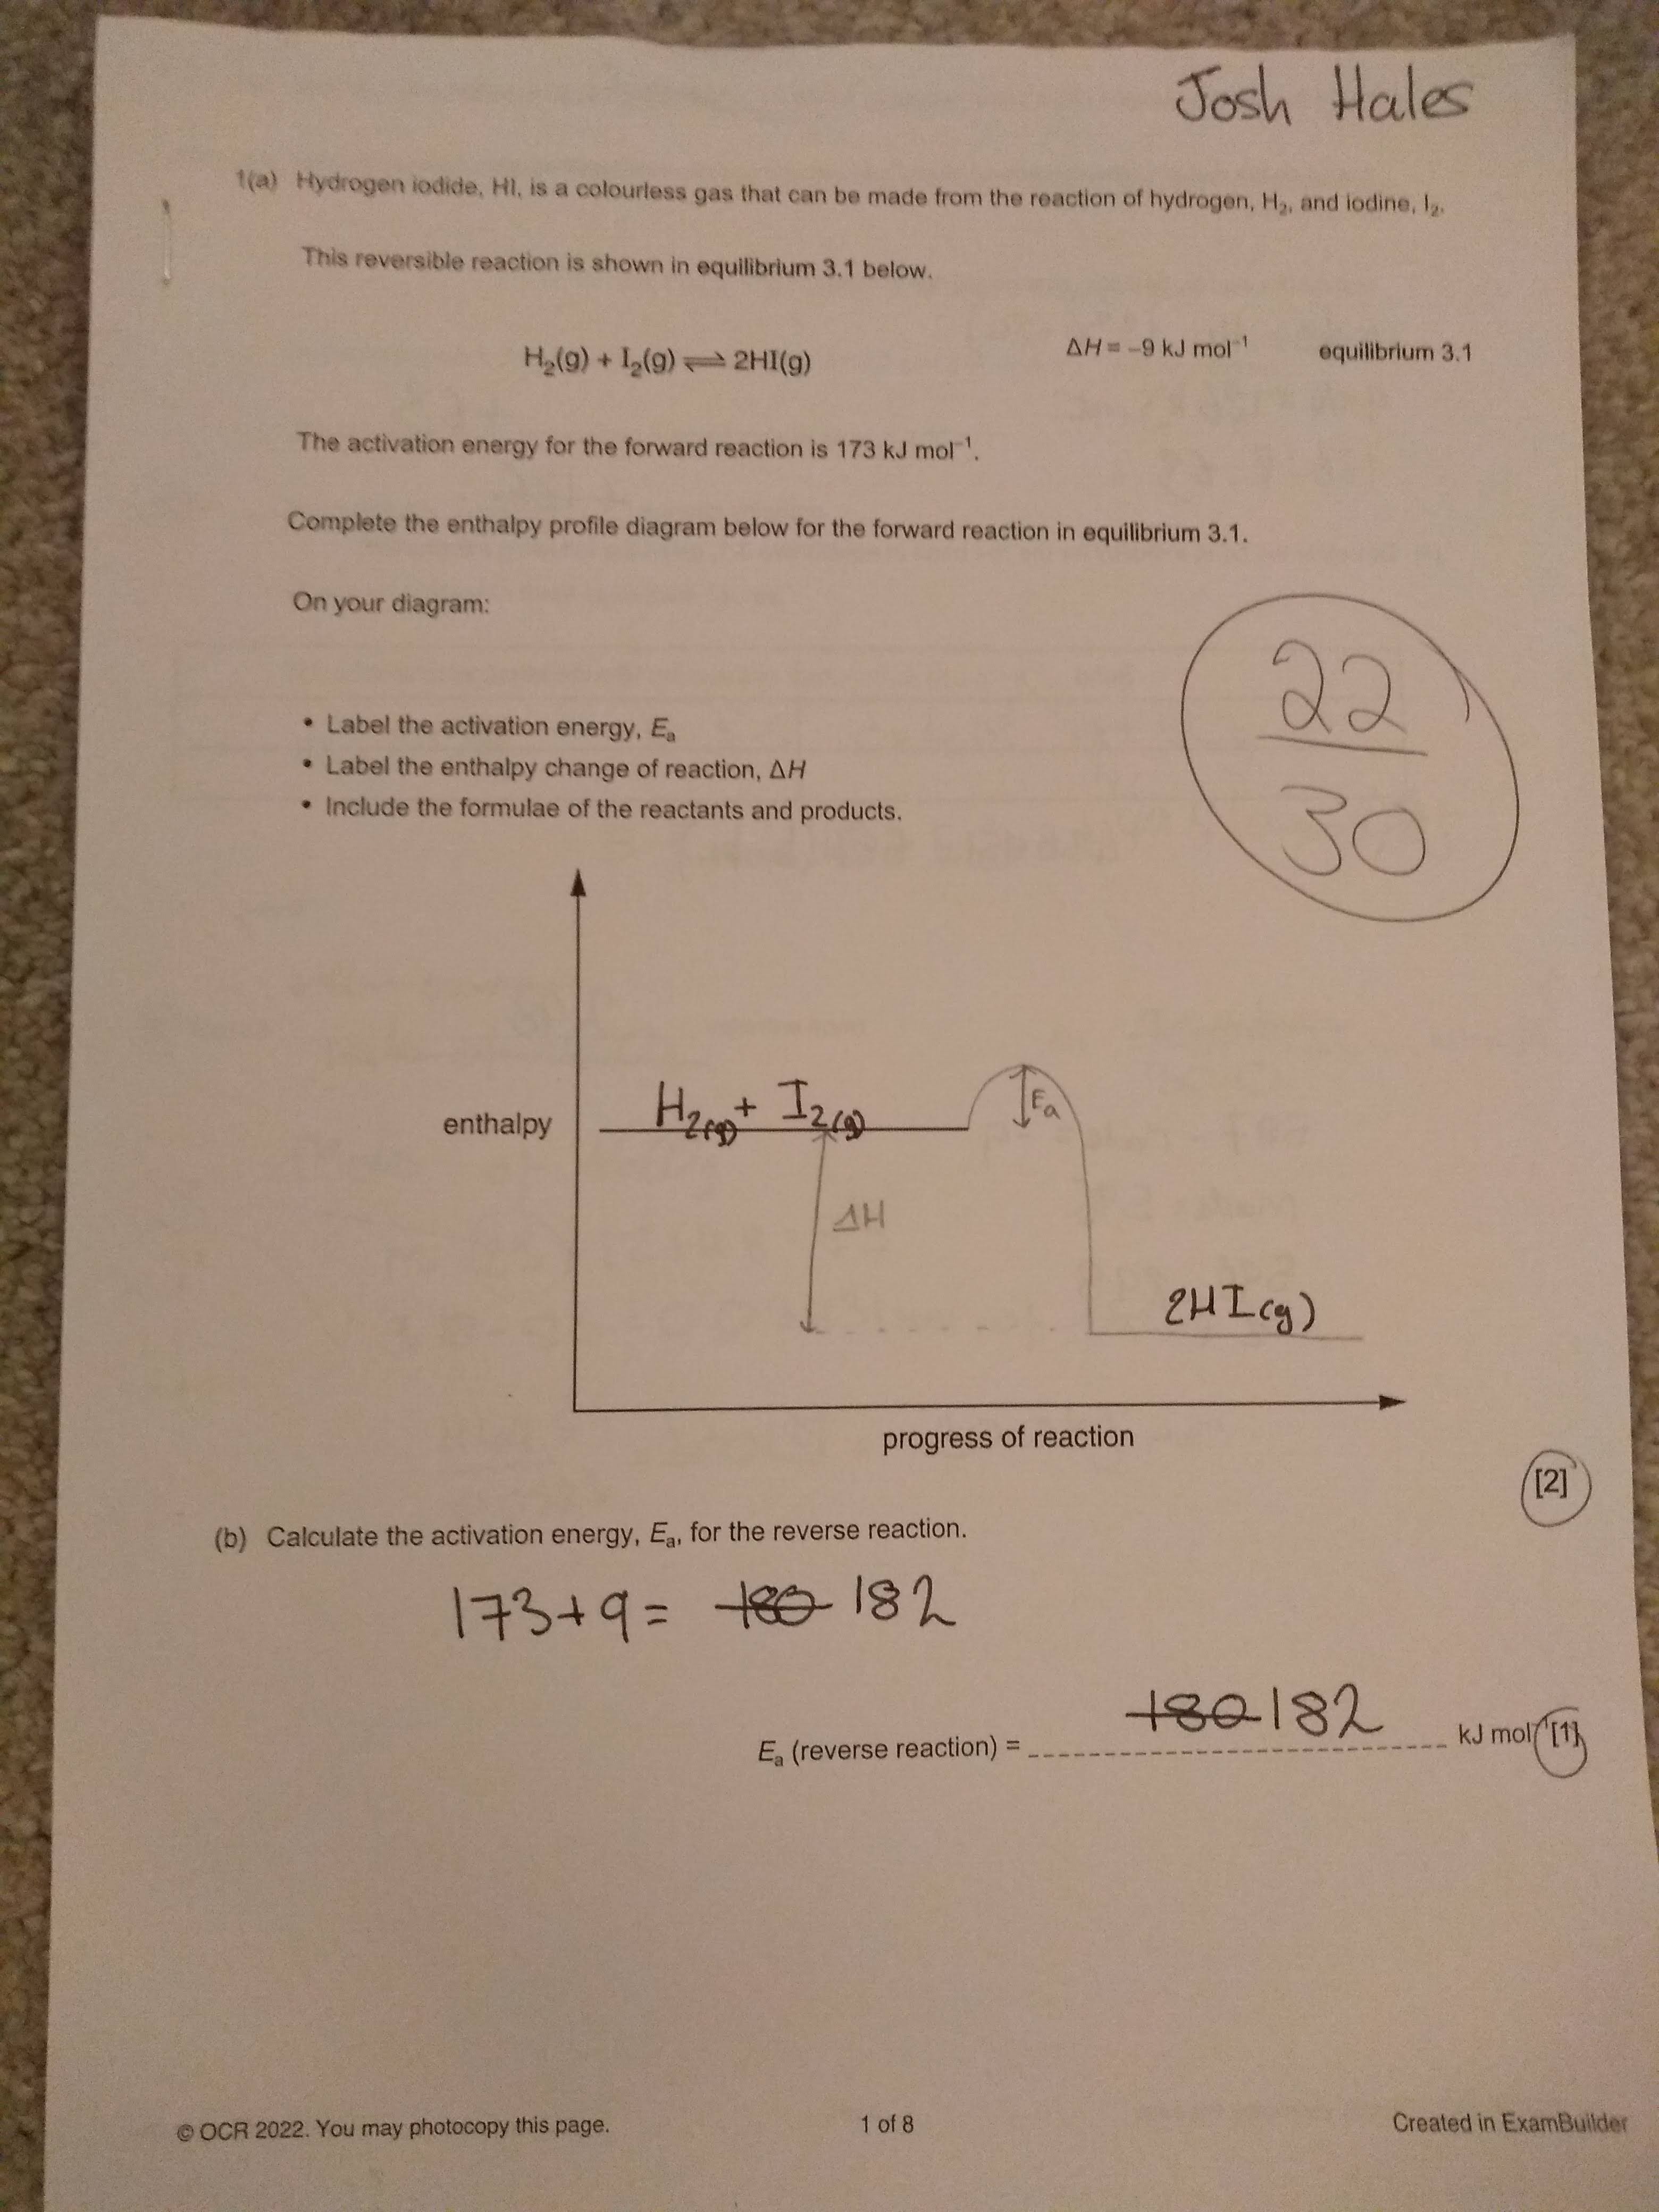 Josh Hales
1(a) Hydrogen iodide, HI, is a colourless gas that can be made from the reaction of hydrogen, H₂, and iodine, I₂.
This reversible reaction is shown in equilibrium 3.1 below.
H₂(g) + I₂(g) ⇌ 2HI(g) ΔH = –9 kJ mol⁻¹ equilibrium 3.1
The activation energy for the forward reaction is 173 kJ mol⁻¹.
Complete the enthalpy profile diagram below for the forward reaction in equilibrium 3.1.
On your diagram:
22
30
• Label the activation energy, Eₐ
• Label the enthalpy change of reaction, ΔH
• Include the formulae of the reactants and products.
H₂(g) + I₂(g)
Eₐ
enthalpy
ΔH
2HI(g)
progress of reaction
[2]
(b) Calculate the activation energy, Eₐ, for the reverse reaction.
173+9= 180 182
180 182
Eₐ (reverse reaction) = kJ mol⁻¹ [1]
© OCR 2022. You may photocopy this page. 1 of 8 Created in ExamBuilder